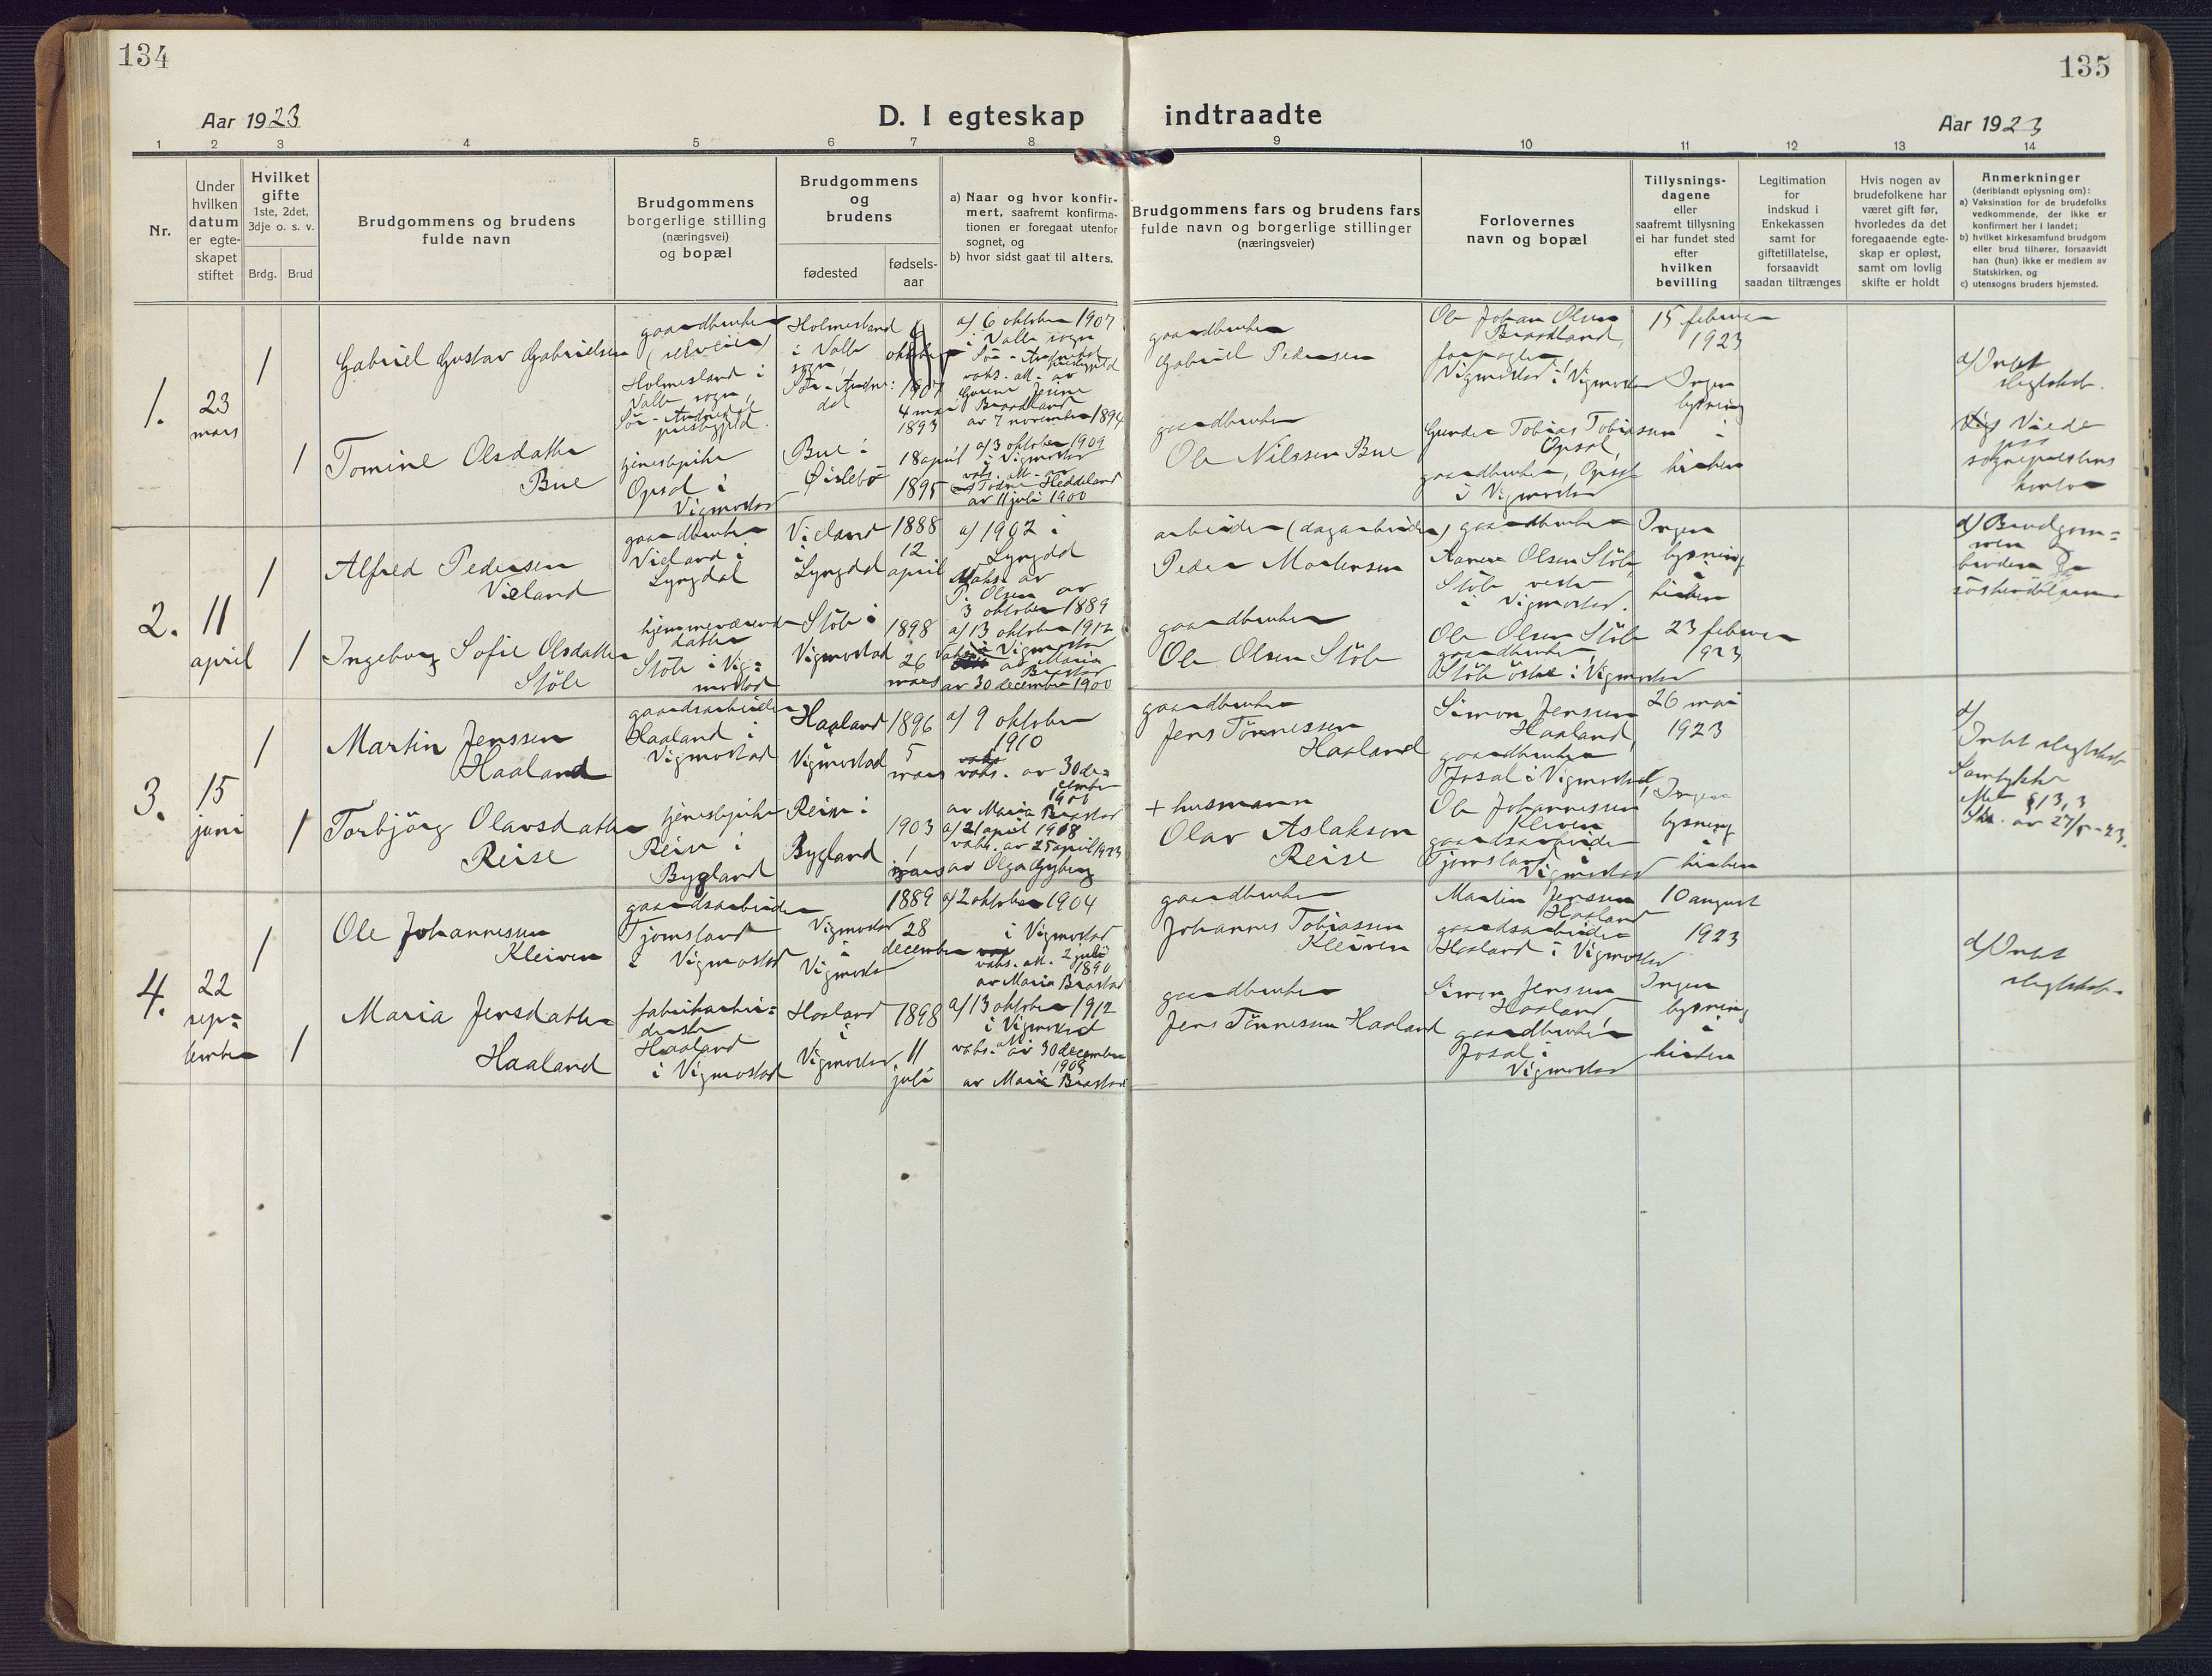 134
135
Aar 1923
D. I egteskap indtraadte
Aar 1923
1 2 3 4 5 6 7 8 9 10 11 12 13 14
Nr.
Under
hvilken
datum
er egte-
skapet
stiftet
Hvilket
gifte
1ste, 2det,
3dje o. s. v.
Brdg. Brud
Brudgommens og brudens
fulde navn
Brudgommens
borgerlige stilling
(næringsvei)
og bopæl
Brudgommens
og
brudens
fødested
fødsels-
aar
a) Naar og hvor konfir-
mert, saafremt konfirma-
tionen er foregaat utenfor
sognet, og
b) hvor sidst gaat til alters.
Brudgommens fars og brudens fars
fulde navn og borgerlige stillinger
(næringsveier)
Forlovernes
navn og bopæl
Tillysnings-
dagene
eller
saafremt tillysning
ei har fundet sted
efter
hvilken
bevilling
Legitimation
for
indskud i
Enkekassen
samt for
giftetillatelse,
forsaavidt
saadan tiltrænges
Hvis nogen av
brudefolkene har
været gift før,
hvorledes da det
foregaaende egte-
skap er opløst,
samt om lovlig
skifte er holdt
Anmerkninger
(deriblandt oplysning om):
a) Vaksination for de brudefolks
vedkommende, der ikke er
konfirmert her i landet;
b) hvilket kirkesamfund brudgom
eller brud tilhører, forsaavidt
han (hun) ikke er medlem av
Statskirken, og
c) utensogns bruders hjemsted.
1.
23
mars
1
Gabriel Gustav Gabrielsen
gaardbruker
(selveier)
Holmesland i
Valle sogn,
Sør-Audnedal
prestegjeld.
Holmesland
i Valle
sogn,
Sør-Audne:
dal
4 mai
1893
a) 6 oktober 1907
i Valle sogn
Sør-Audnedal
prestegjeld
vaks. att. av
Jesine
Braadland
av 7 november 1894
gaardbruker
Gabriel Pedersen
Ole Johan Olsen
Braadland,
forpagter
Vigmostad i Vigmostad
15 februar
1923
Ingen
lysning
i
kirken
d) Intet
slegtskab.
Viede
paa
sogneprestens
kontor
1
Tomine Olsdatter
Bue
tjenestepike
Opsal i
Vigmostad
Bue i
Øislebø
18 april
1895
a) 3 oktober 1909
i Vigmostad
vaks. att. av
Heddeland
av 11 juli 1900
gaardbruker
Ole Nilssen Bue
Gunder Tobias Tobiassen
Opsal,
gaardbruker, Opsal
i Vigmostad
2.
11
april
1
Alfred Pedersen
Vieland
gaardbruker
Vieland i
Lyngdal
Vieland
i
Lyngdal
1888
12
april
a) 1902 i
Lyngdal
Vaks. av
P. Olsen av
3 oktober 1889
arbeider (dagarbeider)
Peder Mortensen
gaardbruker
Olsen Støle,
Støle vestre
i Vigmostad.
Ingen
lysning
i
kirken
d) Brudgom=
men og
bruden er
søskendebarn
1
Ingeborg Sofie Olsdatter
Støle
hjemmeværende
datter
Støle i Vig=
mostad
Støle i
Vigmostad
1898
26
mars
a) 13 oktober 1912
i Vigmostad
av Maria
Brastad
av 30 december 1900
gaardbruker
Ole Olsen Støle
Ole Olsen Støle
gaardbruker,
Støle østre i Vigmostad
23 februar
1923
3.
15
juni
1
Martin Jenssen
Haaland
gaardsarbeider
Haaland i
Vigmostad
Haaland
i
Vigmostad
1896
5
mars
a) 9 oktober
1910
vaks. av 30 de=
cember
1900
av Maria Brastad
gaardbruker
Jens Tønnessen
Haaland
Simon Jenssen
Haaland,
gaardbruker
Josal i Vigmostad,
26 mai
1923
Ingen
lysning
i
kirken
d)
Intet slegtskab
Samtykke
efter § 13, 3
av 27/5-23.
1
Torbjørg Olavsdatter
Reise
tjenestepike
Reise i
Bygland
Reise i
Bygland
1903
1
mars
a) 21 april 1918
vaks. av 25 april 1923
av Olga Nyberg
+ husmann
Olav Aslaksen
Reise
Ole Johannessen
Kleiven
gaardsarbeider
Tjomsland i
Vigmostad
4.
22
sep=
tember
1
Ole Johannessen
Kleiven
gaardsarbeider
Tjomsland
i Vigmostad
Vigmostad
i
Vigmostad
1889
28
december
a) 2 oktober 1904
i Vigmostad
vaks. att. 2 juli
1890
av Maria Brastad
gaardbruker
Johannes Tobiassen
Kleiven
Martin Jenssen
Haaland
gaardsarbeider
Haaland i Vigmostad
10 august
1923
Ingen
lysning
i
kirken
d) Intet
slegtskab.
1
Maria Jensdatter
Haaland
fabrikarbei=
derske
Haaland
i Vigmostad
Haaland
i
Vigmostad
1898
11
juli
a) 13 oktober 1912
i Vigmostad
vaks. att. av 30 december
av Maria Brastad
gaardbruker
Jens Tønnessen Haaland
Simon Jenssen
Haaland,
gaardbruker
Josal i
Vigmostad